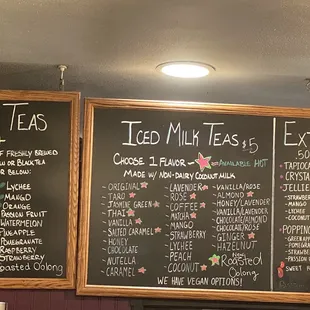 TEAS
OF FRESHLY BREWED
OR BLACK TEA
OR BELOW:
LYCHEE
MANGO
ORANGE
PASSION FRUIT
WATERMELON
PINEAPPLE
POMEGRANATE
RASPBERRY
STRAWBERRY
ROASTED OOLONG
ICED MILK TEAS $5
CHOOSE 1 FLAVOR - ☆=AVAILABLE HOT
MADE W/ NON-DAIRY COCONUT MILK
ORIGINAL
TARO
JASMINE GREEN
THAI
VANILLA
SALTED CARAMEL
HONEY
CHOCOLATE
NUTELLA
CARAMEL
LAVENDER
ROSE
COFFEE
MATCHA
MANGO
STRAWBERRY
LYCHEE
PEACH
COCONUT
VANILLA/ROSE
ALMOND
HONEY/LAVENDER
VANILLA/LAVENDER
CHOCOLATE/ALMOND
CHOCOLATE/ROSE
GINGER
HAZELNUT
NEW
ROASTED
OOLONG
WE HAVE VEGAN OPTIONS!
EXT
.50
TAPIOCA
CRYSTA
JELLIE
STRAWB
MANGO
LYCHEE
COCONUT
POPPING
GREEN
STRAWB
MANGO
SWEET